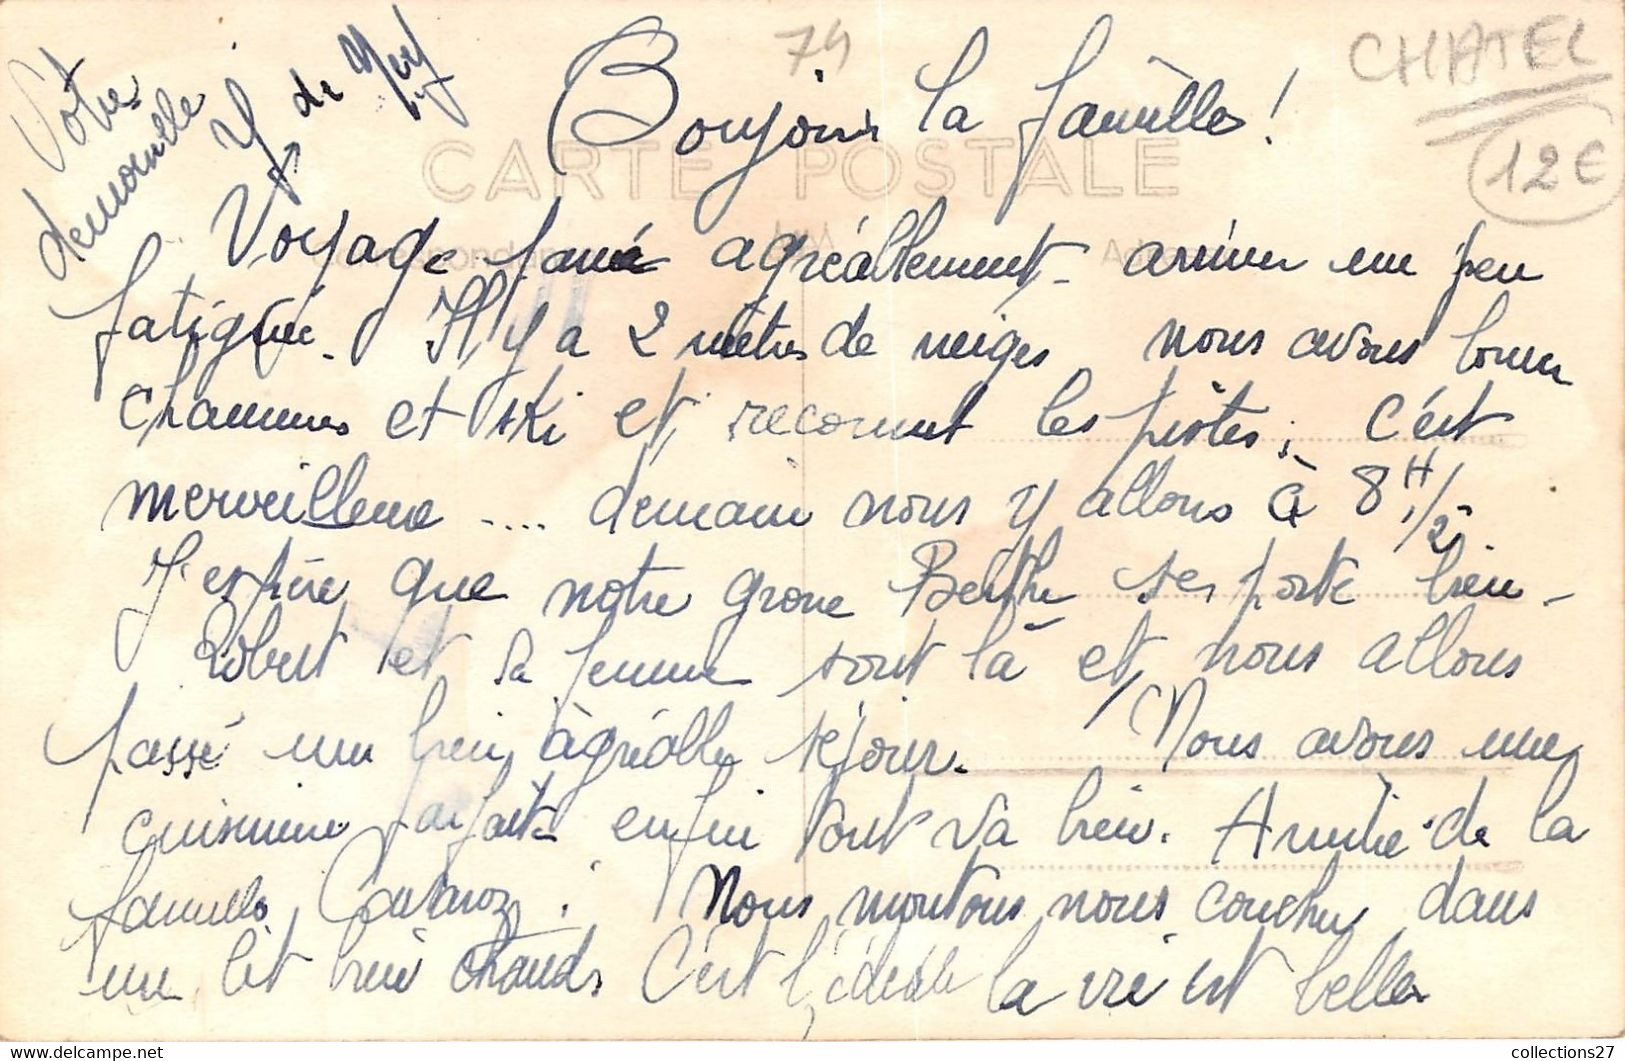 74
CHATEL
12€
CARTE POSTALE
Bonjour la famille !
Voyage passé agréablement - arriver un peu
fatigué. Il y a 2 mètres de neiges nous avons louer
chaussures et ski et reconnut les pistes, c'est
merveilleux .... demain nous y allons à 8 H 1/2.
J'espère que notre grosse Berthe se porte bien -
Robert et sa femme sont là et nous allons
passé un bien agréable séjour. Nous avons une
cuisinière parfaite enfin tout va bien. Amitié de la
famille. Nous montons nous coucher dans
un lit bien chauds C'est l'idéale la vie est belle
Votre
demoiselle
Y de
collections27